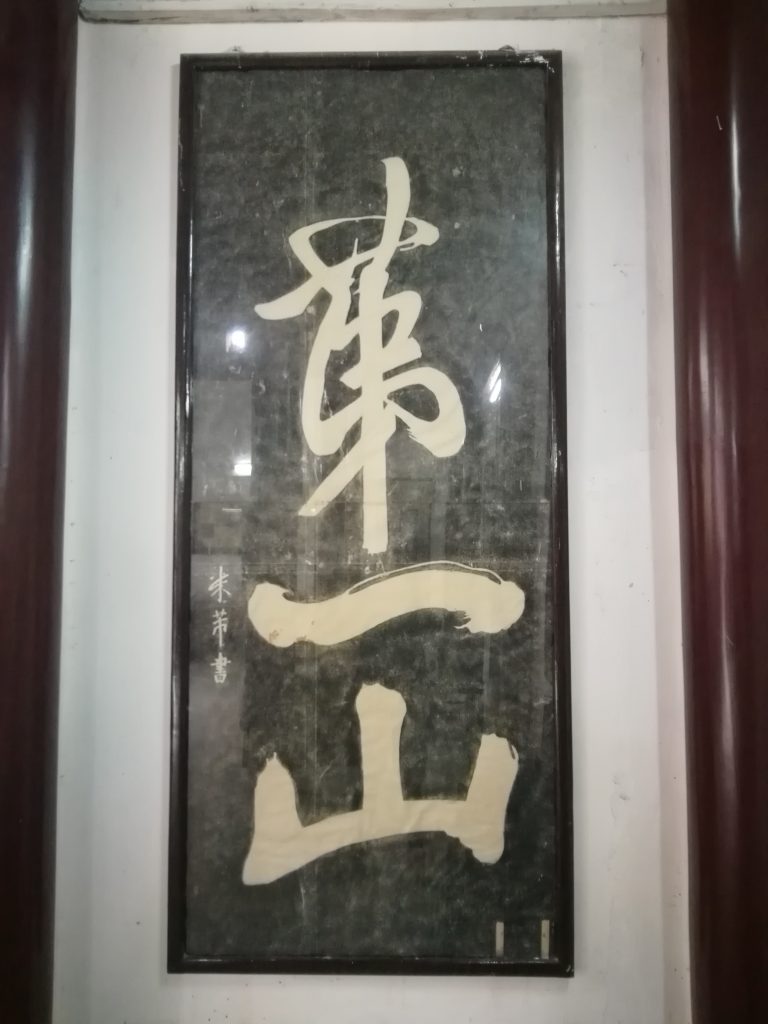 第一山
米芾書